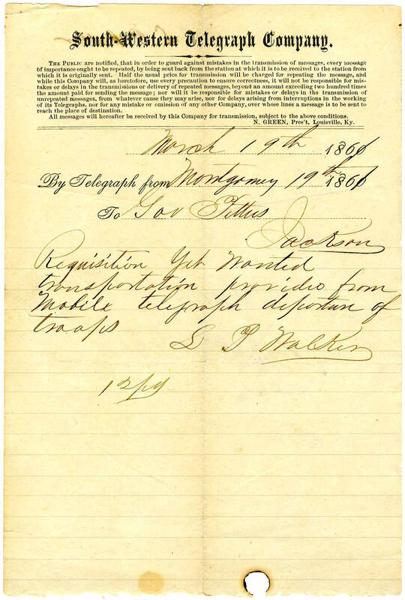 South-Western Telegraph Company.
THE PUBLIC are notified, that in order to guard against mistakes in the transmission of messages, every message
of importance ought to be repeated, by being sent back from the station at which it is to be received to the station from
which it is originally sent. Half the usual price for transmission will be charged for repeating the message, and
while this Company will, as heretofore, use every precaution to ensure correctness, it will not be responsible for mis-
takes or delays in the transmissions or delivery of repeated messages, beyond an amount exceeding two hundred times
the amount paid for sending the message; nor will it be responsible for mistakes or delays in the transmission of
unrepeated messages, from whatever cause they may arise, nor for delays arising from interruptions in the working
of its Telegraphs, nor for any mistake or omission of any other Company, over whose lines a message is to be sent to
reach the place of destination.
All messages will hereafter be received by this Company for transmission, subject to the above conditions.
N. GREEN, Pres't, Louisville, Ky.
March 19th 1861
By Telegraph from Montgomery 19th 1861
To Gov Pettus
Jackson
Requisition yet wanted
transportation provided from
Mobile telegraph departure of
troops
L P Walker
12 pd